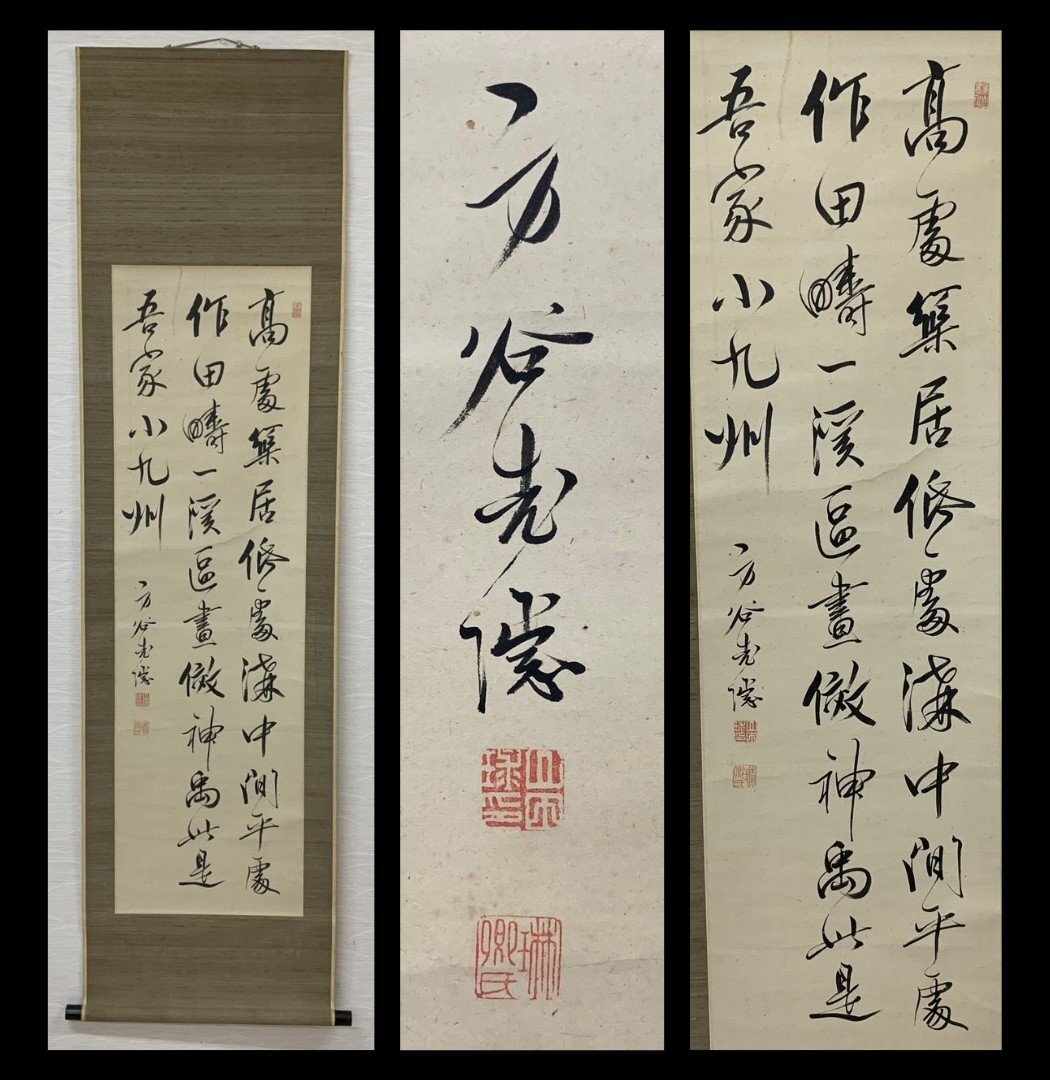 高處築居低處溝中間平處
作田疇一溪區畫倣神禹此是
吾家小九州
方谷老隱
方谷老隱
山田球印
琳卿氏
高處築居低處溝中間平處
作田疇一溪區畫倣神禹此是
吾家小九州
方谷老隱